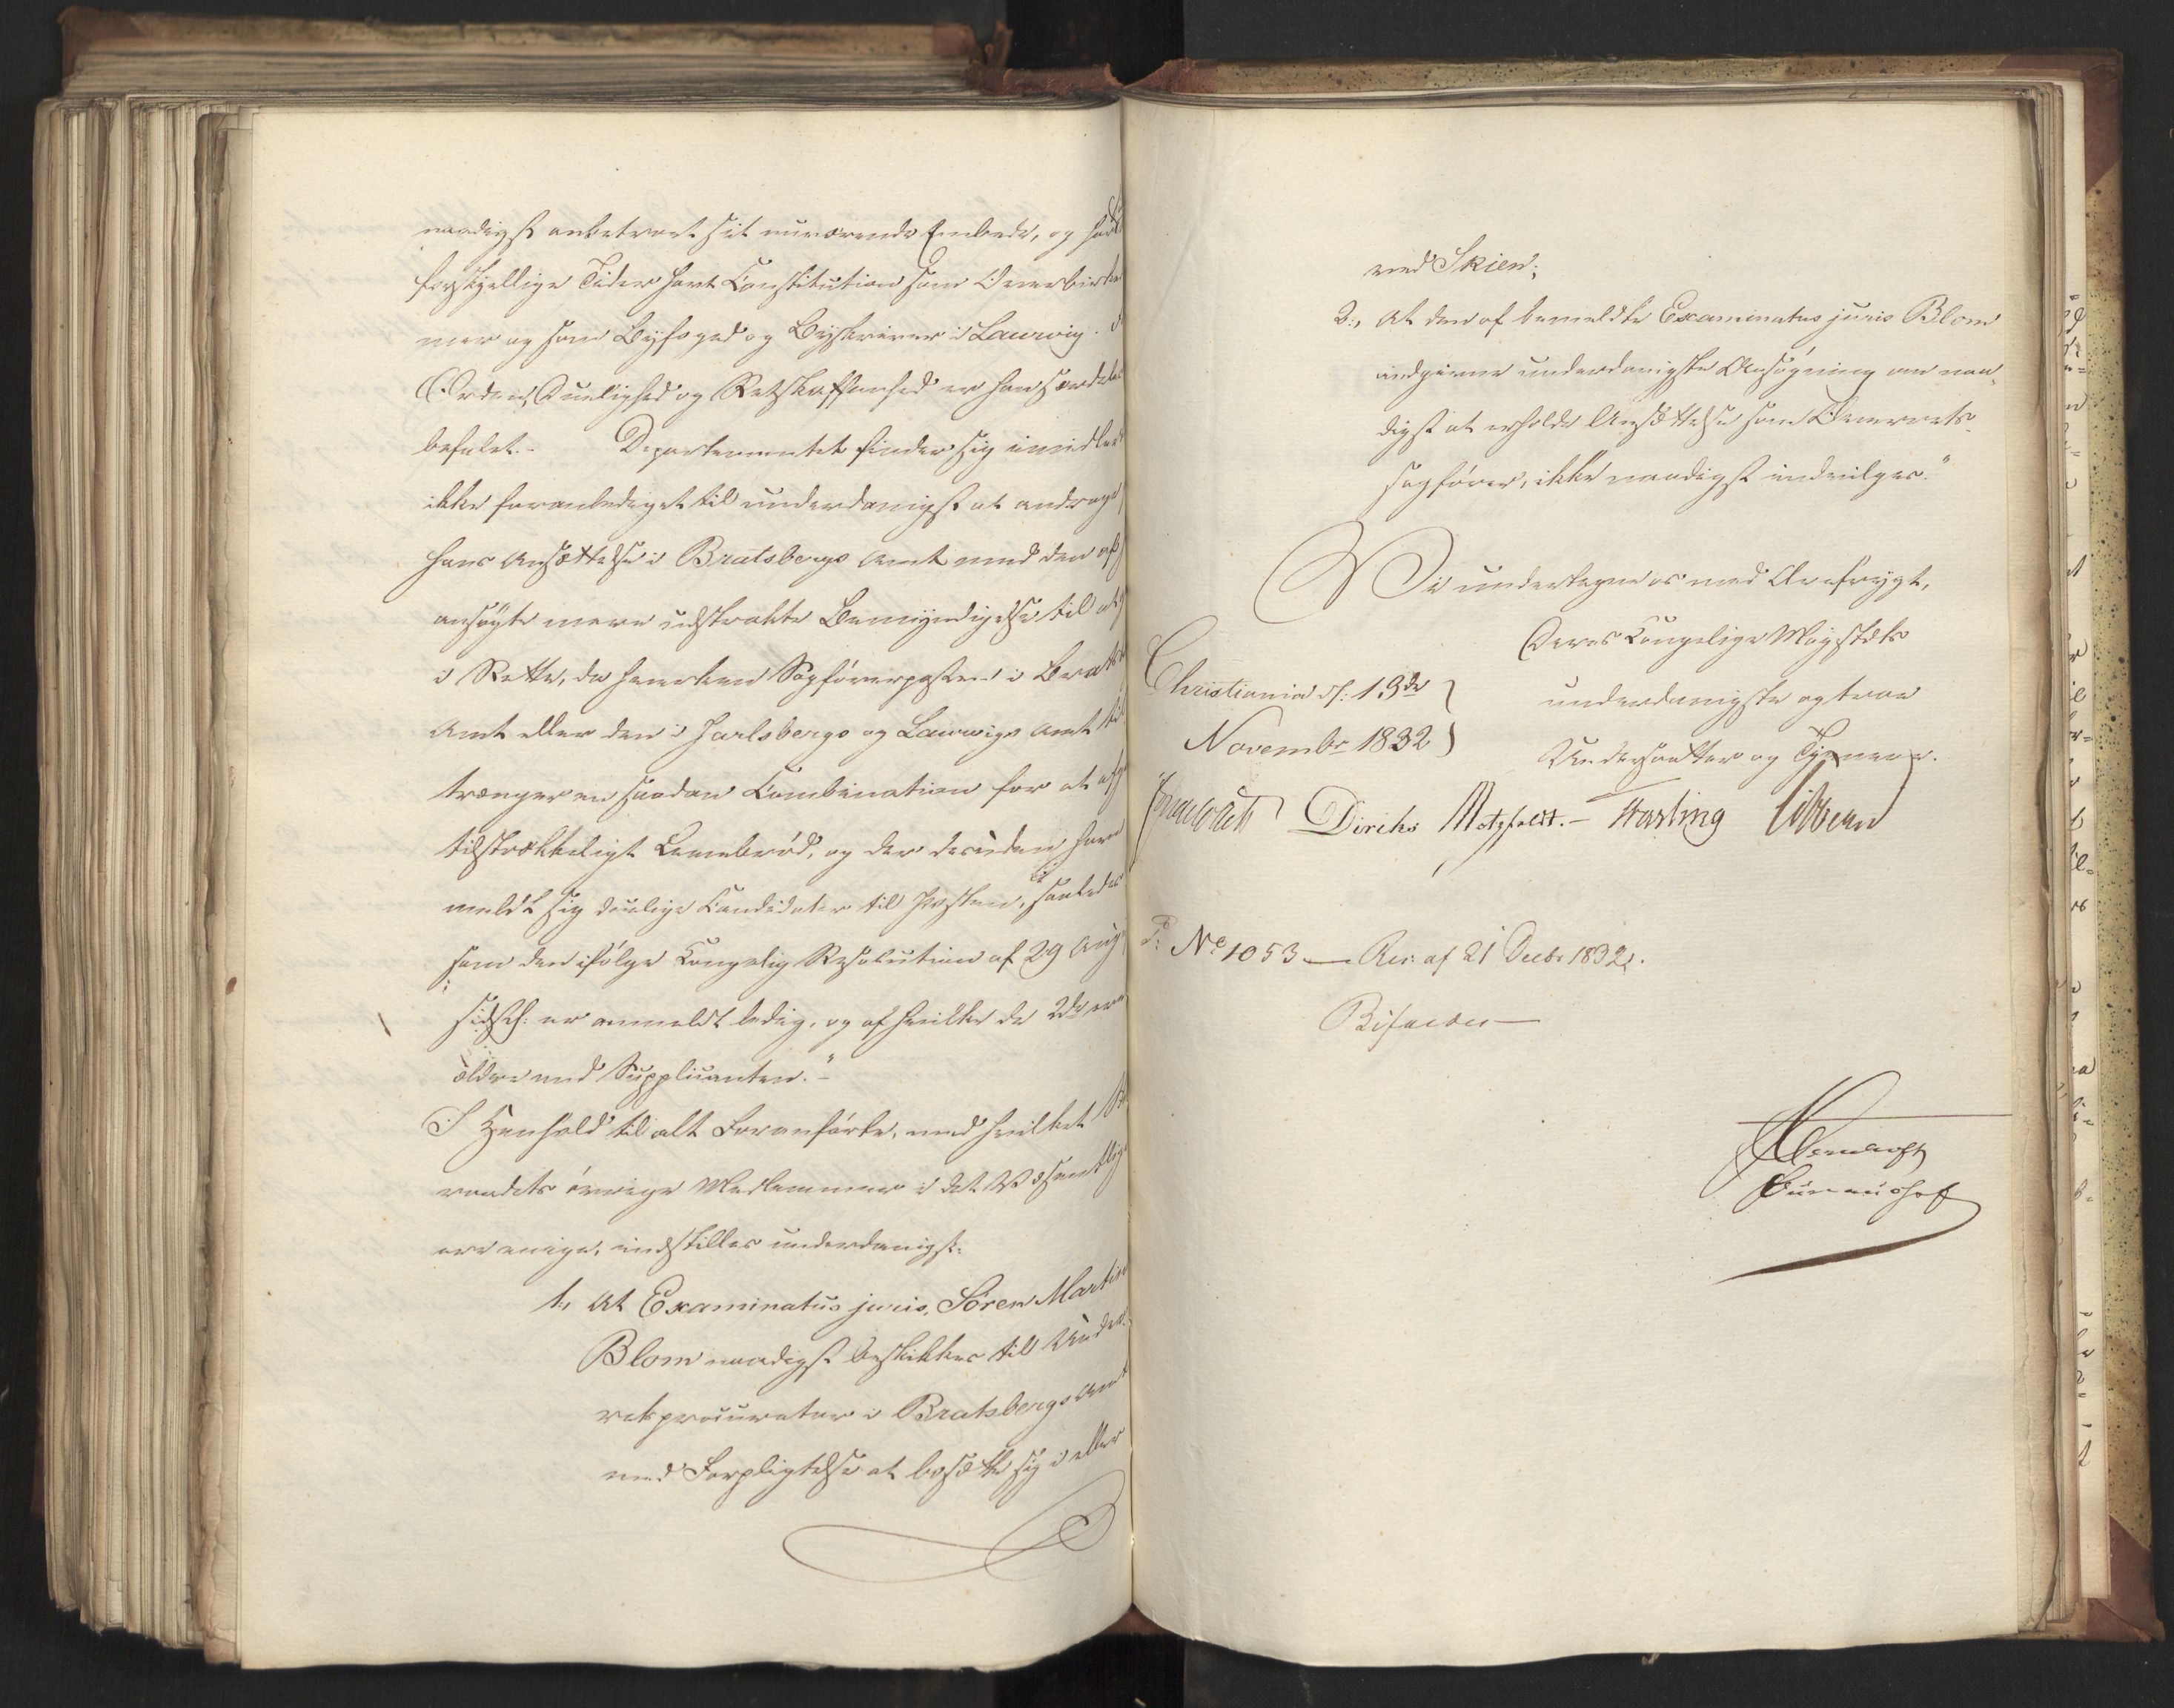 naadigst anbetroet sit nuværende Embede, og har til
forskjellige Tider havt Constitution som Overbirkedom
mer og som Byfoged og Byskriver i Laurvig.
Orden, Duelighed og Retskaffenhed er han særdeles
befalet. - Departementet finder sig imidlert
ikke foranlediget til underdanigst at andrage
hans Ansættelse i Bratsbergs Amt med den af
ansøgte mere udstrakte Bemyndigelse til at
i Rette, da hverken Sagførerposten i Bratsb
Amt eller den i Jarlsbergs og Laurvigs Amt til
trænger en saadan Combination for at afgi
tilstrækkeligt Levebrød, og der desuden have
meldt sig duelige Candidater til Posten, saaledes
som den ifølge Kongelig Resolution af 29 Aug
sidstl: er anmeldt ledig, og af hvilke de 2de ere
ældre end Supplicanten." -
I Henhold til alt Foranførte, med hvilket
raadets øvrige Medlemmer i det Væsentlige
ere enige, indstilles underdanigst:
1., At Examinatus juris, Sören Martin
Blom naadigst beskikkes til Under-
retsprocurator i Bratsbergs Amt
med Forpligtelse at bosætte sig i eller
ved Skien;
2., At den af bemeldte Examinatus juris Blom
indgivne underdanigste Ansøgning om naa-
digst at erholde Ansættelse som Overrets-
sagfører, ikke naadigst indvilges."
Vi undertegne os med Ærefrygt,
Deres Kongelige Majestæts
Christiania d: 13de underdanigste og troe
Novembr 1832 Undersaatter og Tjenere.
Diriks Motzfeldt. - Hasting
P: No 1053 — Res: af 21 Decbr 1832.
Bifaldes —